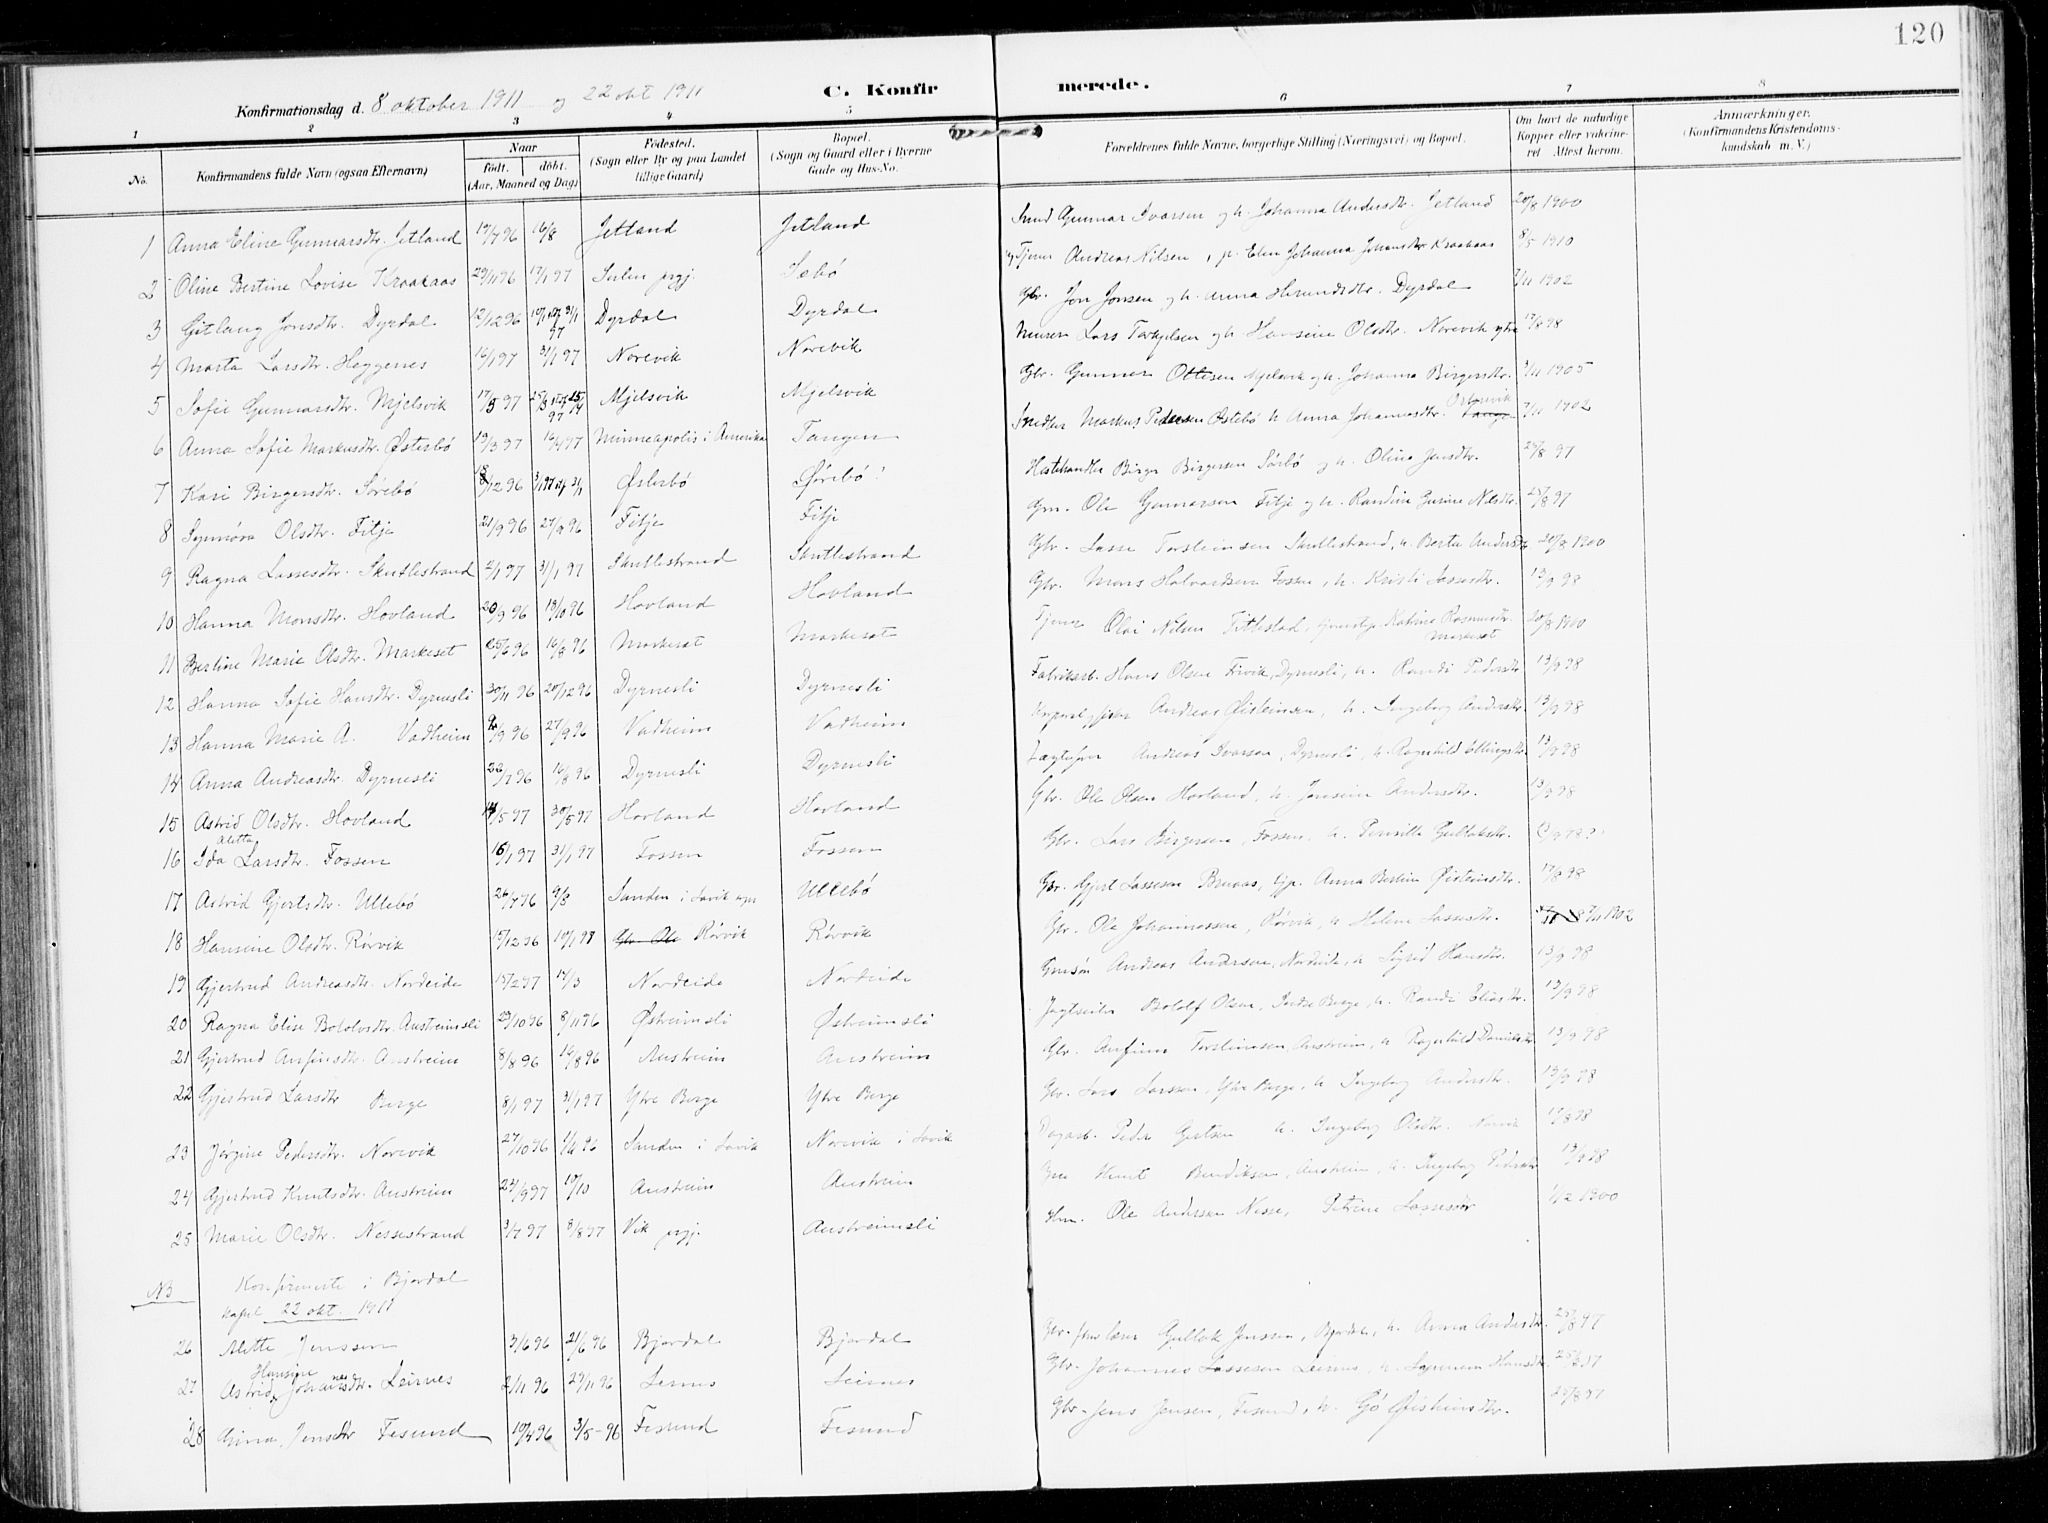 120
Konfirmationsdag d. 8 oktober 1911 og 22 okt 1911
C. Konfirmerede.
1 2 3 4 5 6 7 8
No. Konfirmandens fulde Navn (ogsaa Efternavn) Naar født. døbt. (Aar, Maaned og Dag) Fødested. (Sogn eller By og paa Landet tillige Gaard) Bopæl. (Sogn og Gaard eller i Byerne Gade og Hus-No. Forældrenes fulde Navne, borgerlige Stilling (Næringsvei) og Bopæl. Om havt de naturlige Kopper eller vakcineret Attest herom. Anmærkninger. (Konfirmandens Kristendomskundskab m. V.)
1 Anna Eline Gunnarsdtr. Jetland 19/7 96 16/8 Jetland Jetland Smed Gunnar Ivarsen og h. Johanna Andersdtr. Jetland 20/8 1900
2 Oline Bertine Lovise Kraakaas 29/11 96 17/1 97 Sulen prgj. Sebø Tjener Andreas Nilsen, p. Elen Johanna Johansdtr Kraakaas 8/5 1910
3 Gitlaug Jonsdtr. Dyrdal 12/12 96 Dyrdal Dyrdal Gbr. Jon Jonsen og h. Anna Dyrdal 7/11 1902
4 Marta Larsdtr. Heggenes 16/1 97 31/1 97 Norevik Norevik Murer Lars Torkjelsen og h. Hansine Olsdtr. Norevik ytre 17/8 98
5 Sofie Gunnarsdtr. Mjelsvik 17/3 97 Mjelsvik Mjelsvik Gbr. Gunnar Ottesen Mjelsvik og h. Johanna Birgersdtr. 3/11 1905
6 Anna Sofie Markusdtr. Østerbø 19/3 97 16/4 97 Minneapolis i Amerika Tangen Snedker Markus Pedersen Østebø h. Anna Johannesdtr. 7/11 1902
7 Kari Birgersdtr. Sørebø 18/12 96 Østerbø Sørebø Hestehandler Birger Birgersen Sørbø og h. Oline Jensdtr. 25/8 97
8 Synnøva Olsdtr. Fitje 21/9 96 27/9 96 Fitje Fitje Gm. Ole Gunnarsen Fitje og h. Randine Gurine Nilsdtr. 25/8 97
9 Ragna Lassesdtr. Skutlestrand 2/1 97 31/1 97 Skutlestrand Skutlestrand Gbr. Lasse Torsteinsen Skutlestrand, h. Berta Andersdtr 20/8 1900
10 Hanna Monsdtr. Hovland 20/9 96 18/10 96 Hovland Hovland Gbr. Mons Halvardsen Fossen, h. Kristi Lassesdtr. 13/9 98
11 Bertine Marie Olsdtr. Markeset 25/6 96 16/8 96 Markeset Markeset Tjener Olai Nilsen Tittlestad, Katrine Rasmusdtr. Markeset 20/8 1900
12 Hanna Sofie Hansdtr. Dyrnesli 30/11 96 20/12 96 Dyrnesli Dyrnesli Fabriksarb. Hans Olsen Dyrnesli, h. Randi Pedersdtr 13/9 98
13 Hanna Marie A. Vadheim 2/9 96 27/9 96 Vadheim Vadheim Andreas Øisteinsen, h. Ingeborg Andersdtr. 13/9 98
14 Anna Andreasdtr. Dyrnesli 22/7 96 16/8 96 Dyrnesli Dyrnesli Andreas Ivarsen, Dyrnesli, h. Ragnhild Ellingsdtr. 13/9 98
15 Astrid Olsdtr. Hovland 14/5 97 30/5 97 Hovland Hovland Gbr. Ole Olsen Hovland, h. Jensine Andersdtr. 13/9 98
16 Ida Aletta Larsdtr. Fossen 16/1 97 31/1 97 Fossen Fossen Gbr. Lars Birgersen, Fossen, h. Pernille Gulleksdtr.
17 Astrid Gjertsdtr. Ullebø 26/7 96 9/8 Sanden i Lavik Ullebø Gbr. Gjert Lassesen Bruaas, Anna Bertine Øisteinsdtr. 17/8 98
18 Hansine Olsdtr. Rørvik 15/12 96 10/1 98 Rørvik Rørvik Gbr. Ole Johannessen, Rørvik, h. Helene Lassesdtr. 7/11 1902
19 Gjertrud Andreasdtr. Nordeide 15/2 97 14/3 Nordeide Nordeide Andreas Andersen, Nordeide, h. Sigrid Hansdtr. 13/9 98
20 Ragna Elise Bolelvsdtr. Austreimsli 23/10 96 8/11 96 Østreimsli Østreimsli Bolelf Olsen, Indre Berge, h. Randi Eliasdtr. 13/9 98
21 Gjertrud Anfinsdtr. Austreim 8/8 96 16/8 96 Austreim Austreim Gbr. Anfinn Torsteinsen, Austreim, h. Ragnhild Danielsdtr 13/9 98
22 Gjertrud Larsdtr Berge 8/1 97 31/1 97 Ytre Berge Ytre Berge Gbr. Lars Larssen, Ytre Berge, h. Ingeborg Andersdtr. 13/9 98
23 Jørgine Pedersdtr. Norevik 27/10 96 Sanden i Lavik Norevik i Lavik Dagarb. Peder Gjertsen h. Ingeborg Olsdtr. Norevik 17/8 98
24 Gjertrud Knutsdtr. Austreim 24/9 97 10/10 Austreim Austreim Knut Bendiksen, Austreim, h. Ingeborg Pedersdtr 13/9 98
25 Marie Olsdtr. Nessestrand 3/7 97 8/8 97 Vik prgj. Austreimsli Hm. Ole Andersen Nesse, Petrine Lassesdtr 1/12 1900
NB Konfirmerte i Bjordal
kapel 22 okt. 1911
26 Alette Jenssen 3/6 96 21/6 96 Bjordal Bjordal Gullak Jenssen, Bjordal, h. Anna Andersdtr 25/8 97
27 Astrid Hansine Johannesdtr. Leirnes 2/11 96 29/11 96 Leirnes Leirnes Gbr. Johannes Lassesen Leirnes, h. Hansdtr. 25/8 97
28 Gina Jensdtr Fesund 19/4 96 3/5-96 Fesund Fesund Gbr. Jens Jensen, Fesund, h. Gjø Øisteinsdtr. 25/8 97